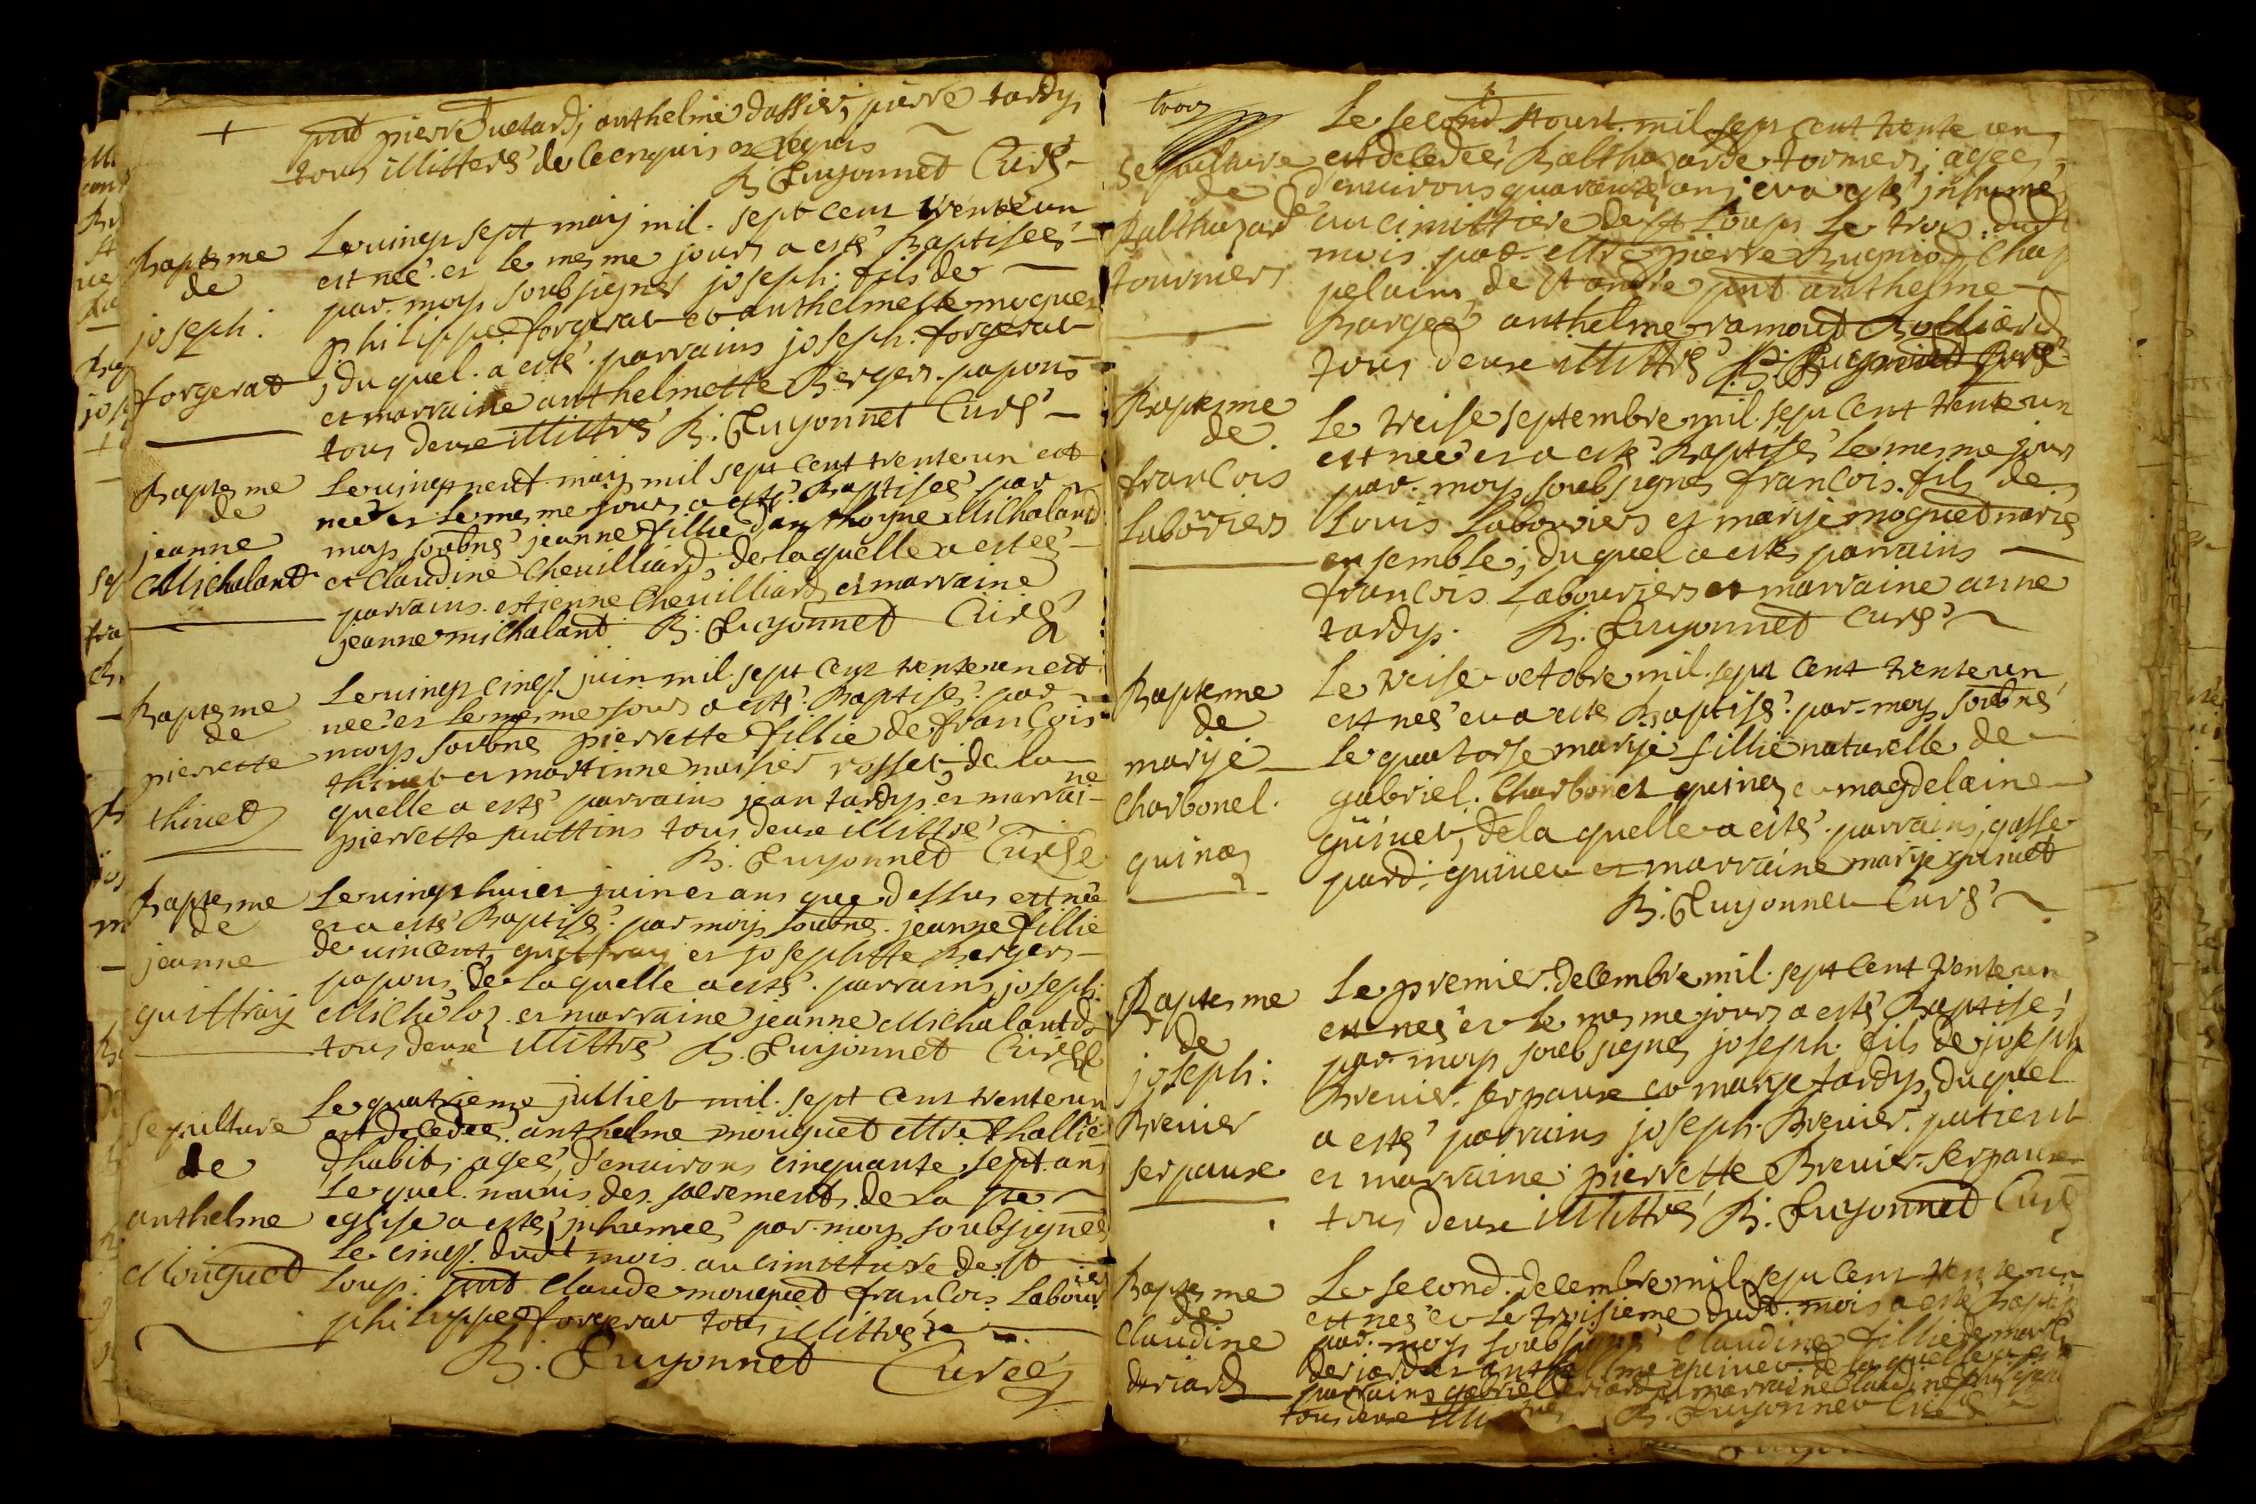 pnt pierre uetard, anthelme dassier, pierre tardy
tous illitters de ce enquis
B. Guyonnet Curé
Baptesme
de
joseph
forgerat
Le uingt sept maij mil sept cent trente un
est neé et le mesme jours a esté Baptiseé
par moy soubsignes joseph fils de
philippe forgerat et anthelmette moquet
duquel a esté parrains joseph forgerat
et marraine anthelmette Berger papons
tous deux illittré B. Guyonnet Curé
Baptesme
de
jeanne
Michaland
Le uingt neuf maij mil sept cent trente un est
neé et le mesme jours a esté Baptiseé par
moy soubné jeanne fillie danthoyne Michaland
et Claudine Cheuilliard, de laquelle a esteé
parrains estienne Cheuilliard et marraine
jeanne michaland B. Guyonnet Curé
Baptesme
de
pierrette
thiuet
Le uingt cinq juin mil sept cent trente un est
neé et le mesme jours a esté Baptisé par
moy soubné pierrette fillie de francois
thiuet et martinne rosset de la
quelle a esté parrains jean tardy et marrai-
ne
pierrette tous deux illittré
B. Guyonnet Curé
Baptesme
de
jeanne
guiffray
Le uingt huict juin et ans que dessus est née
et a esté Baptisé par moy soubné jeanne fillie
de uincent guiffray et josephtte Berger
papons, de laquelle a esté parrains joseph
Michaloz et marraine jeanne Michaland
tous deux illittré B. Guyonnet Curé
Sepulture
de
anthelme
Mouquet
Le quatrieme julliet mil sept cent trente un
est decedeé anthelme mouquet
d'habits ageé d'enuirons cinquante sept ans
Lequel munis des sacrements de La ste
eglise a esté jnhumeé par moy soubsigneé
Le cinq dudt mois au cimittiere de st
Loup. pnt Claude mouquet francois Labourier
philippe forgerat tous illittré
B. Guyonnet Cureé
trois
sepulture
de
Balthazarde
tourniers
Le second Aoust mil sept cent trente un
est decedeé Balthazarde torniers, ageé
d'enuirons quarante ans et a esté jnhumé
au cimittiere de st Loup Le trois dudt
mois par mre pierre Chap
pelains de st andre pnt anthelme
Bargeé anthelme ramoud
tous deux illittré B. Guyonnet Curé
Baptesme
de
francois
Labouriers
Le treise septembre mil sept cent trente un
est neé et a esté Baptisé Le mesme jours
par moy soubsignes francois fils de
Louis Labouriers et marije moquet marié
ensemble, duquel a esté parrains
francois Labouriers et marraine anne
tardy. B. Guyonnet Curé
Baptesme
de
marije
Charbonel
guinet
Le treise octobre mil sept cent trente un
est neé et a esté Baptisé par moy soubné
Le quatorse marije fillie naturelle de
gabriel Charbonet guinet et magdelaine
guinet, de la quelle a esté parrains, gasse
pard guinet et marraine marije guinet
B. Guyonnet Curé
Baptesme
de
joseph
Breuier
serpaux
Le premier decembre mil sept cent trente un
est neé et Le mesme jours a esté Baptisé
par moy soubsignes joseph fils de joseph
Breuier serpaux et marije tardy, duquel
a esté parrains joseph Breuier patient
et marraine pierrette Breuier serpaux
tous deux illittré B. Guyonnet Curé
Baptesme
de
Claudine
deriard
Le second decembre mil sept cent trente un
est neé et Le troisieme dudt mois a esté Baptisé
par moy soubsigné Claudine fillie de
deriard et anthelme guinet de laquelle a esté
parrains gabriel deriard et marraine Claudine
tous deux B. Guyonnet Curé